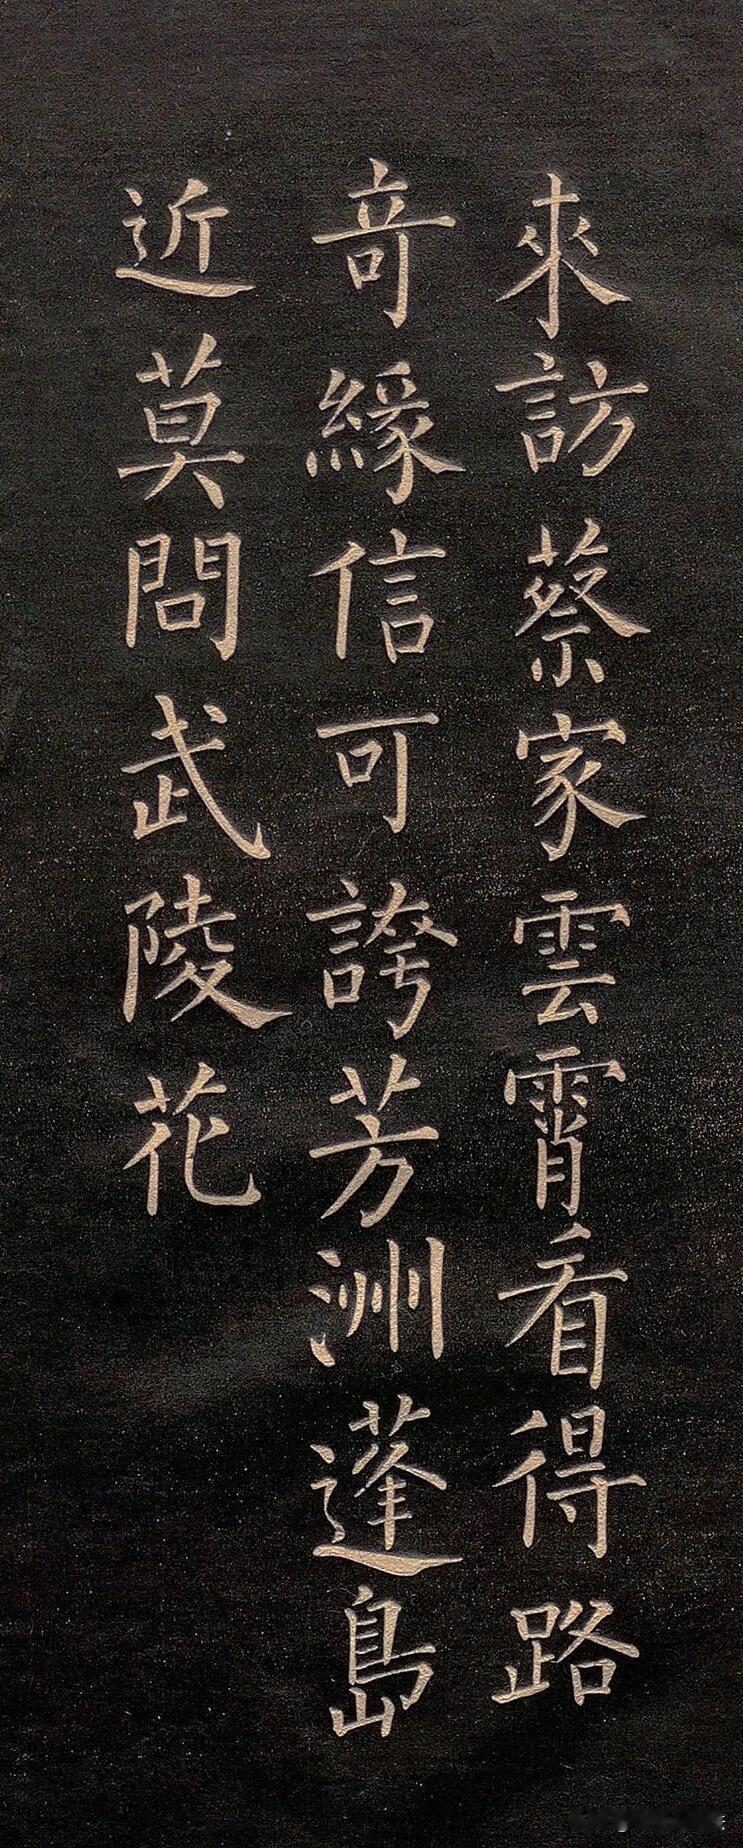 來訪蔡家雲霄看得路
奇緣信可誇芳洲蓬島
近莫問武陵花